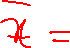 x̅ =